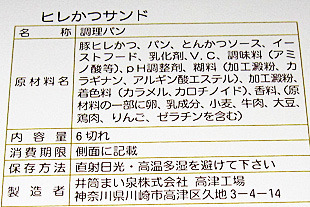 ヒレかつサンド
名称 調理パン
原材料名 豚ヒレかつ、パン、とんかつソース、イー
ストフード、乳化剤、V.C、調味料(アミ
ノ酸等)、pH調整剤、糊料(加工澱粉、カ
ラギナン、アルギン酸エステル)、加工澱粉、
着色料(カラメル、カロチノイド)、香料、(原
材料の一部に卵、乳成分、小麦、牛肉、大豆、
鶏肉、りんご、ゼラチンを含む)
内容量 6切れ
消費期限 側面に記載
保存方法 直射日光・高温多湿を避けて下さい
製造者 井筒まい泉株式会社 高津工場
神奈川県川崎市高津区久地3-4-14